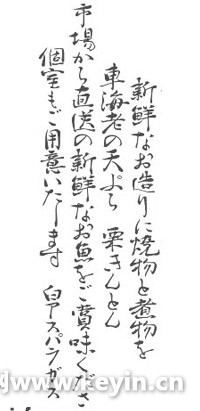 新鮮なお造りに焼物と煮物を
車海老の天ぷら 栗きんとん
市場から直送の新鮮なお魚をご賞味くださ
個室もご用意いたします 白アスパラガス
www.keyin.cn